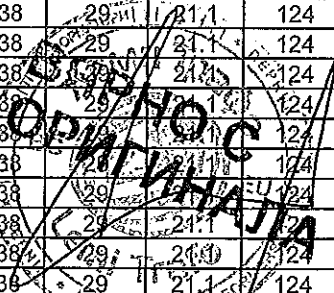 38 29 21,1 124
38 29 21.1 124
38 29 21.1 124
38 29 21.1 124
38 29 21.1 124
38 29 21.1 124
38 29 21.1 124
38 29 21.1 124
38 29 21.1 124
38 29 21.1 124
ВЯРНО С
ОРИГИНАЛА